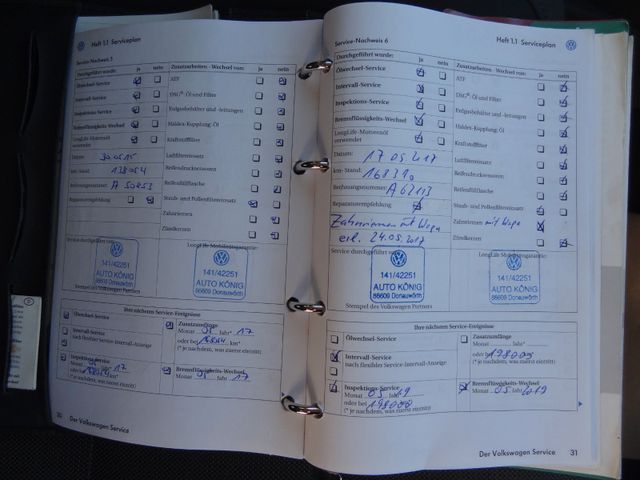 Heft 1.1 Serviceplan
Service-Nachweis 5
Durchgeführt wurde: ja nein
Ölwechsel-Service
Intervall-Service
Inspektions-Service
Bremsflüssigkeits-Wechsel
LongLife-Motorenöl
verwendet
Datum:
30.05.15
km-Stand:
138054
Rechnungsnummer:
A 50853
Reparaturempfehlung
Zusatzarbeiten - Wechsel von: ja nein
ATF
DSG®-Öl und Filter
Erdgasbehälter und -leitungen
Haldex-Kupplung: Öl
Kraftstofffilter
Luftfiltereinsatz
Reifendrucksensoren
Reifenfüllflasche
Staub- und Pollenfiltereinsatz
Zahnriemen
Zündkerzen
Service durchgeführt
LongLife Mobilitätsgarantie:
141/42251
AUTO KÖNIG
86609 Donauwörth
141/42251
AUTO KÖNIG
86609 Donauwörth
Stempel des Volkswagen Partners
Ihre nächsten Service-Ereignisse
Ölwechsel-Service
Intervall-Service
nach flexibler Service-Intervall-Anzeige
Inspektions-Service
(* je nachdem, was zuerst eintritt)
Zusatzumfänge
Monat 05 Jahr* 17
oder bei km*
(* je nachdem, was zuerst eintritt)
Bremsflüssigkeits-Wechsel
Monat 05 Jahr 17
30 Der Volkswagen Service
Service-Nachweis 6
Heft 1.1 Serviceplan
Durchgeführt wurde: ja nein
Ölwechsel-Service
Intervall-Service
Inspektions-Service
Bremsflüssigkeits-Wechsel
LongLife-Motorenöl
verwendet
Datum:
17.05.2017
km-Stand:
168310
Rechnungsnummer:
A 62113
Reparaturempfehlung
Zahnriemen mit Wapu
erl. 24.05.2017
Zusatzarbeiten - Wechsel von: ja nein
ATF
DSG®-Öl und Filter
Erdgasbehälter und -leitungen
Haldex-Kupplung: Öl
Kraftstofffilter
Luftfiltereinsatz
Reifendrucksensoren
Reifenfüllflasche
Staub- und Pollenfiltereinsatz
Zahnriemen mit Wapu
Zündkerzen
Service durchgeführt
LongLife Mobilitätsgarantie:
141/42251
AUTO KÖNIG
86609 Donauwörth
141/42251
AUTO KÖNIG
86609 Donauwörth
Stempel des Volkswagen Partners
Ihre nächsten Service-Ereignisse
Ölwechsel-Service
Intervall-Service
nach flexibler Service-Intervall-Anzeige
Inspektions-Service
Monat 05 Jahr 19
oder bei 198000
(* je nachdem, was zuerst eintritt)
Zusatzumfänge
Monat Jahr*
oder bei 198000
(* je nachdem, was zuerst eintritt)
Bremsflüssigkeits-Wechsel
Monat 05 Jahr 2019
Der Volkswagen Service 31